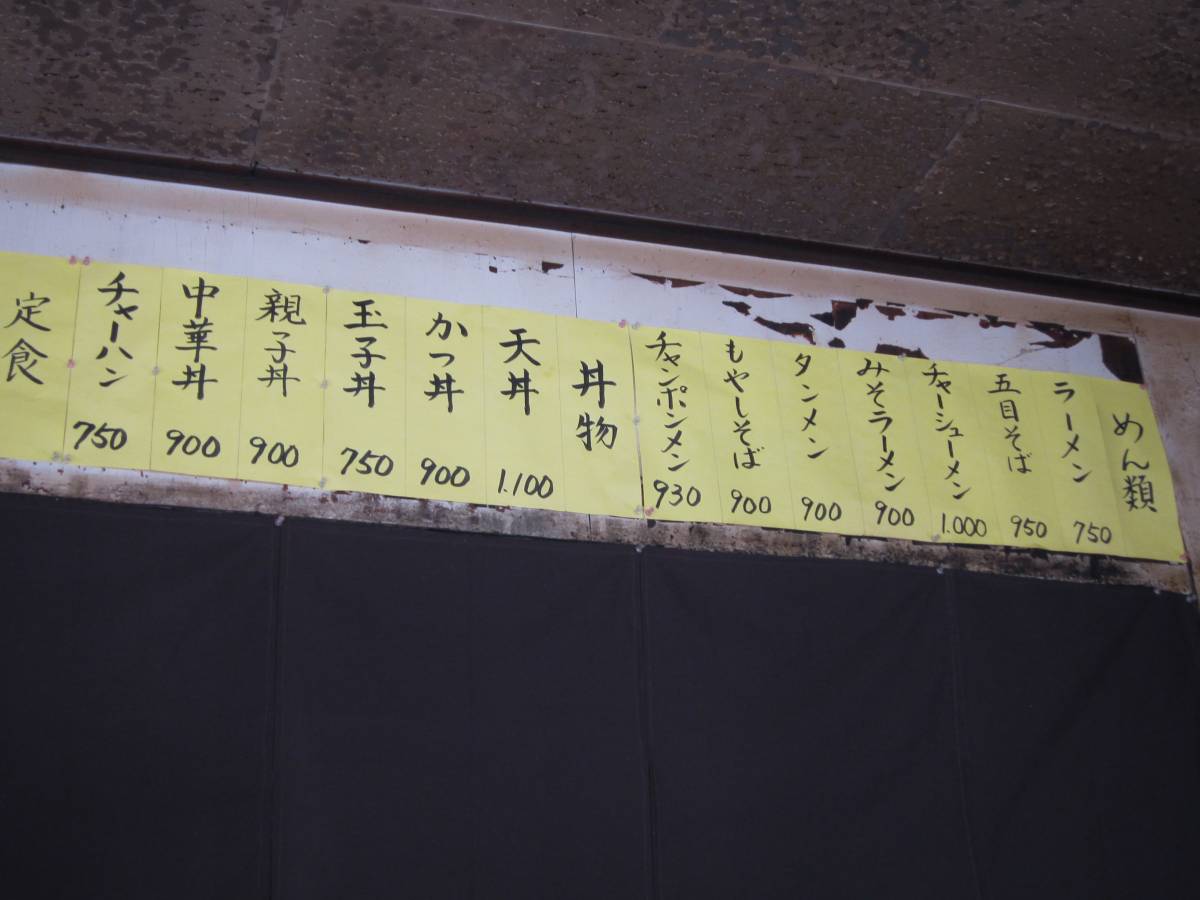 めん類
ラーメン 750
五目そば 950
チャーシューメン 1.000
みそラーメン 900
タンメン 900
もやしそば 900
チャンポンメン 930
丼物
天丼 1.100
かつ丼 900
玉子丼 750
親子丼 900
中華丼 900
チャーハン 750
定食